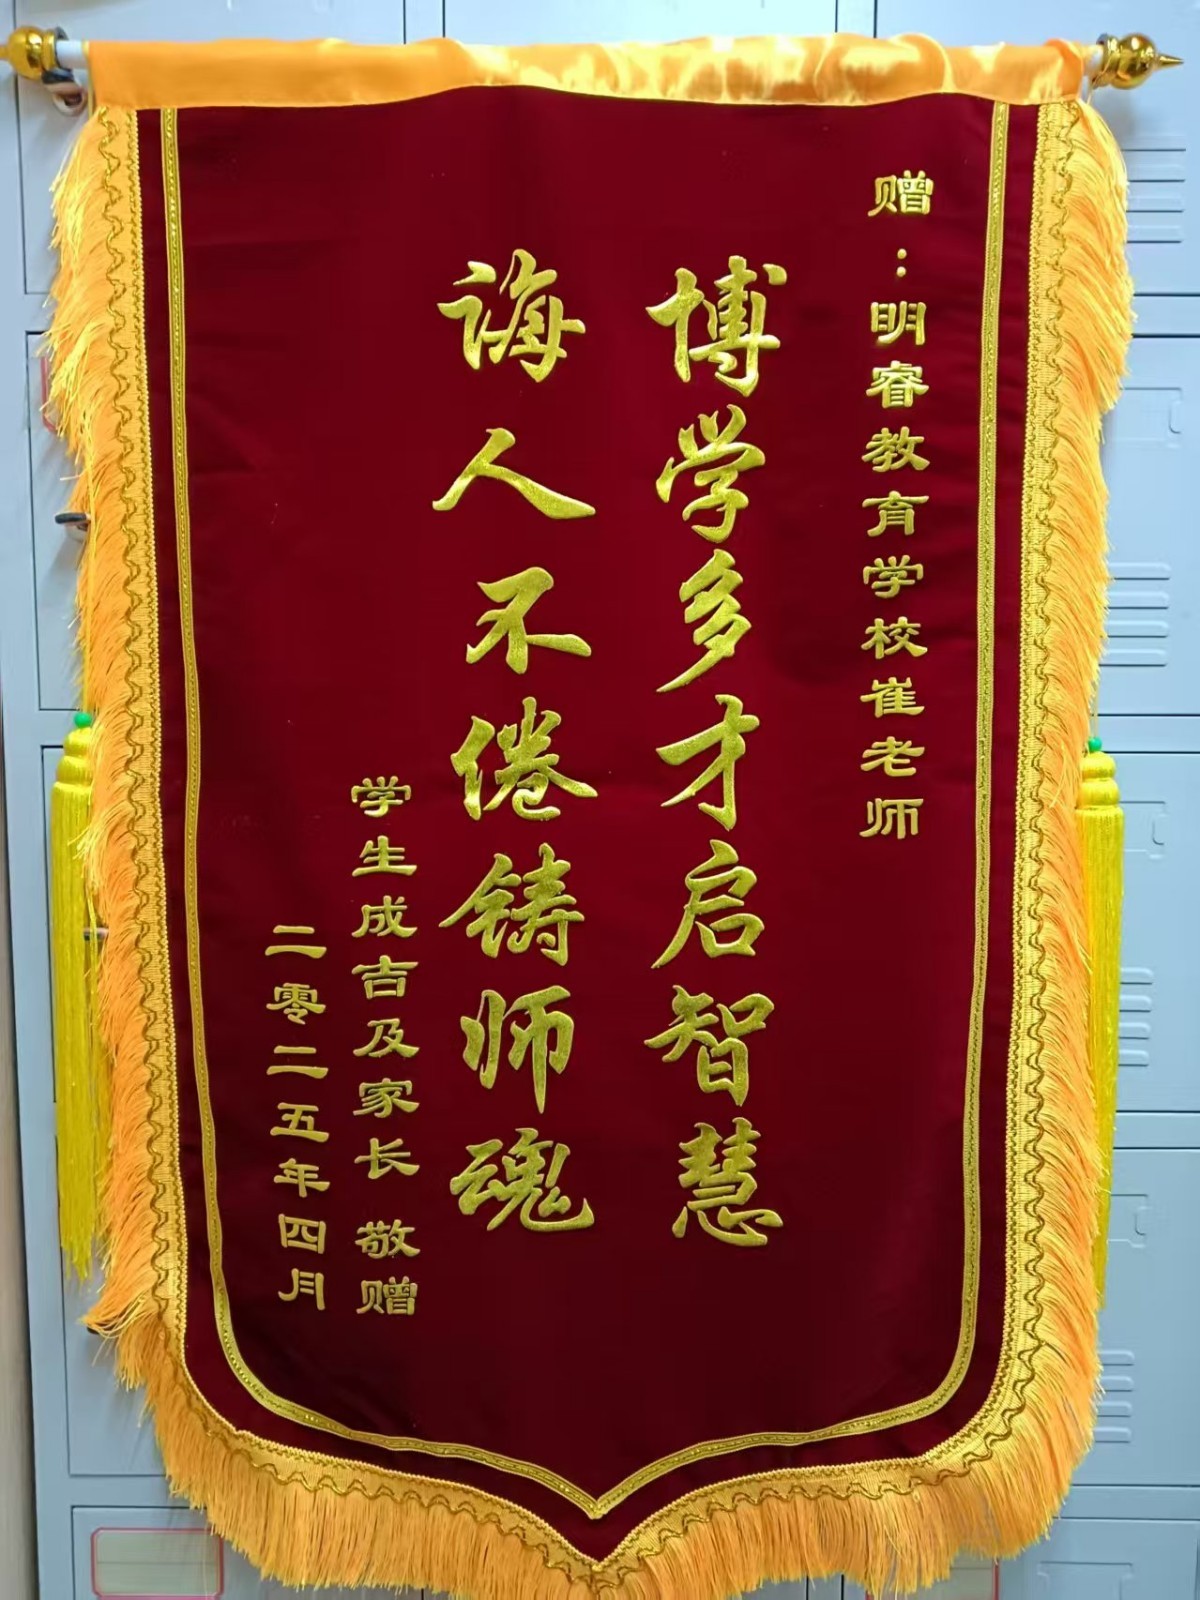 赠：明睿教育学校崔老师
博学多才启智慧
诲人不倦铸师魂
学生成吉及家长 敬赠
二零二五年四月